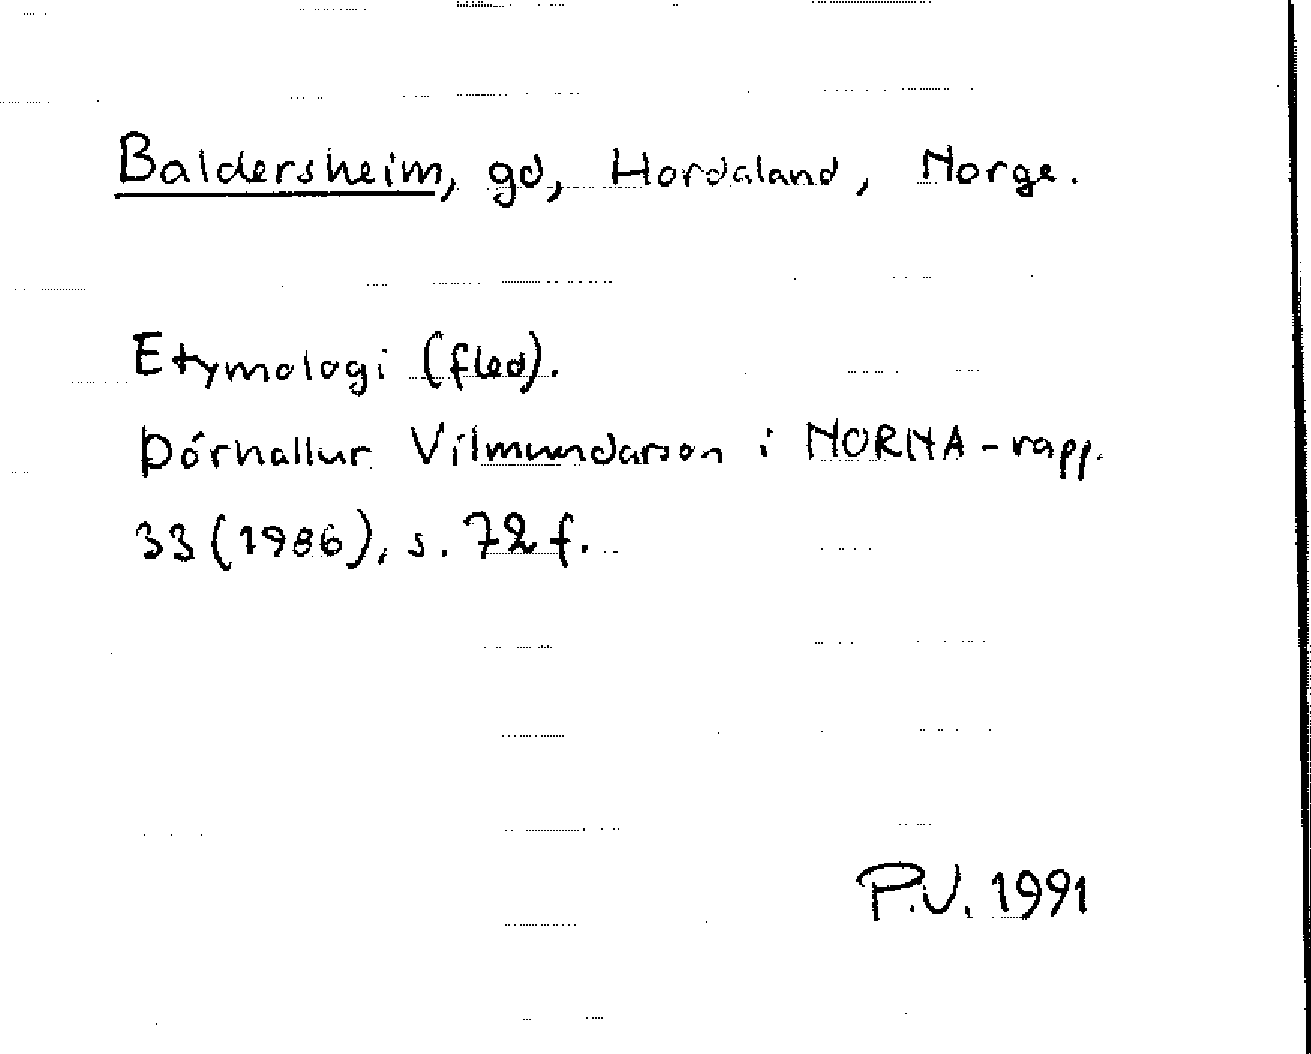 Baldersheim, gd, Hordaland, Norge.
Etymologi (fled).
Þórhallur Vilmundarson i NORNA-rapp.
33 (1986), s. 72 f.
P.V. 1991